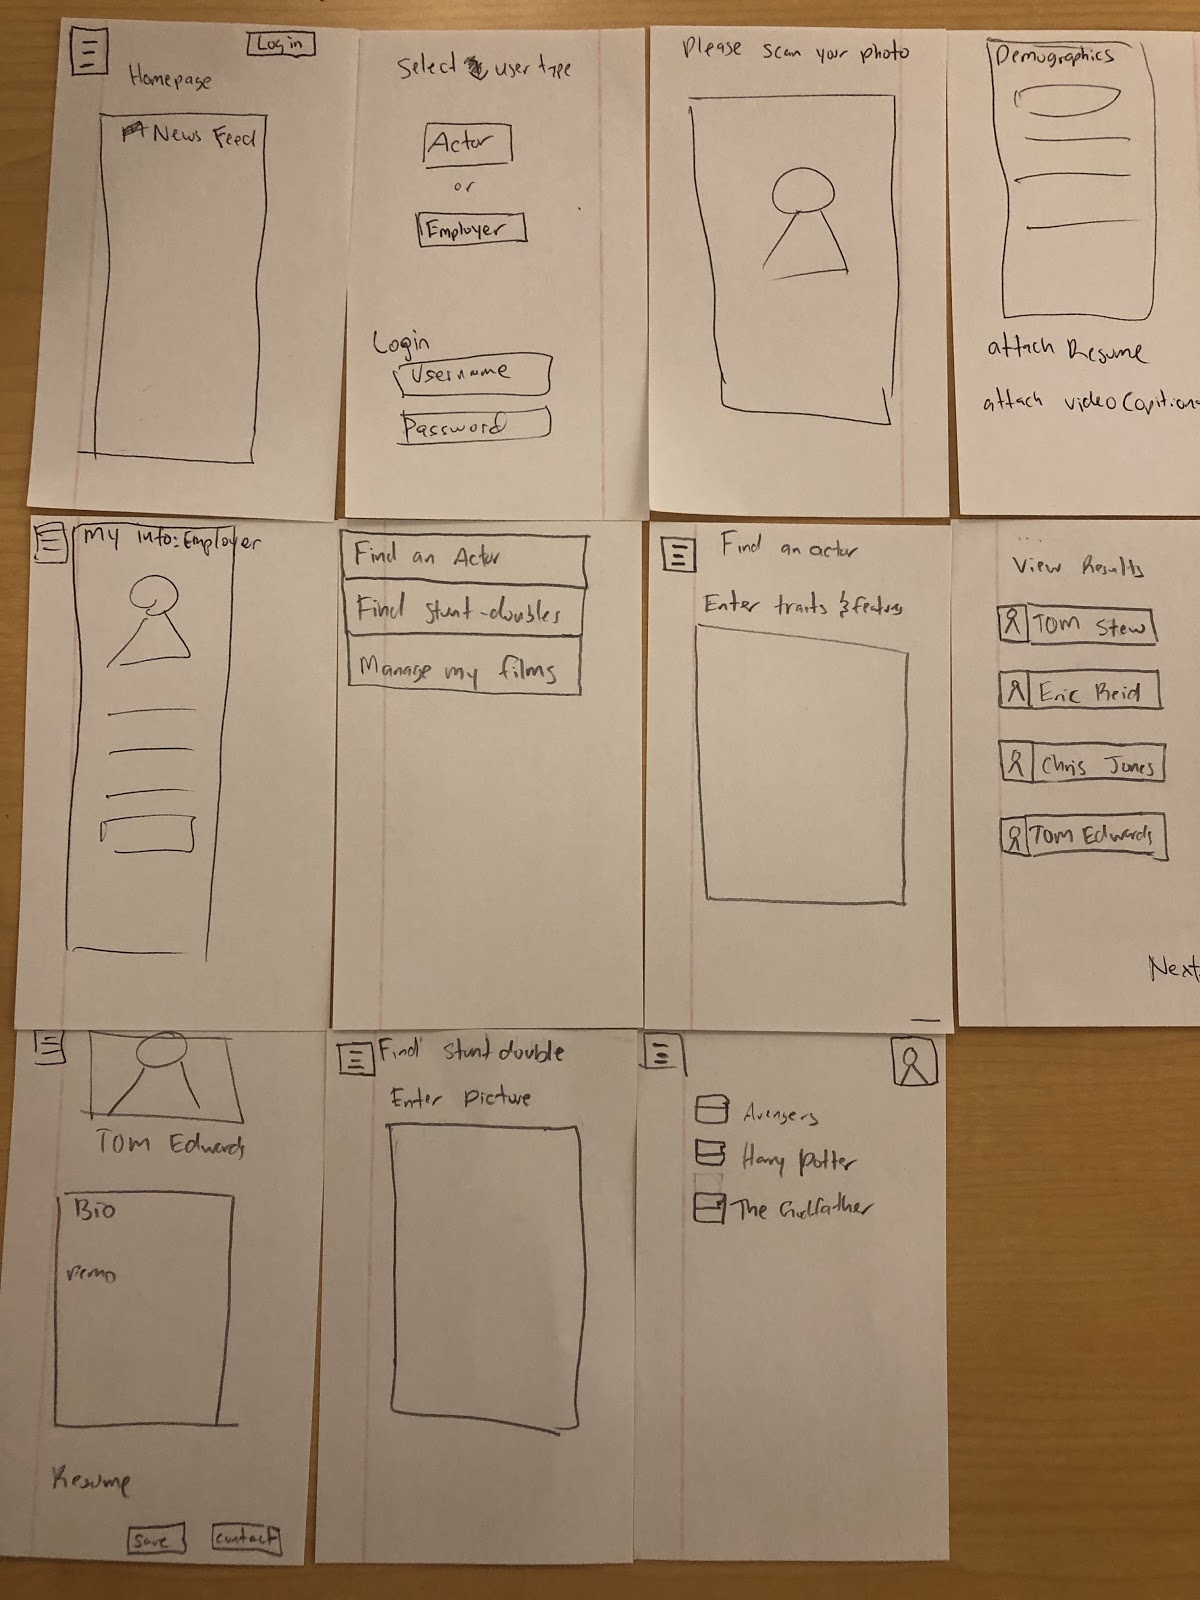 Login
Homepage
News Feed
Select user type
Actor
or
Employer
Login
Username
Password
Please scan your photo
Demographics
attach Resume
attach video
My Info: Employer
Find an Actor
Find stunt-doubles
Manage my films
Find an actor
Enter traits & features
...
View Results
Tom Stew
Eric Reid
Chris Jones
Tom Edwards
Next
Tom Edwards
Bio
Resume
Save
Contact
Find stunt double
Enter Picture
Avengers
Harry Potter
The Godfather